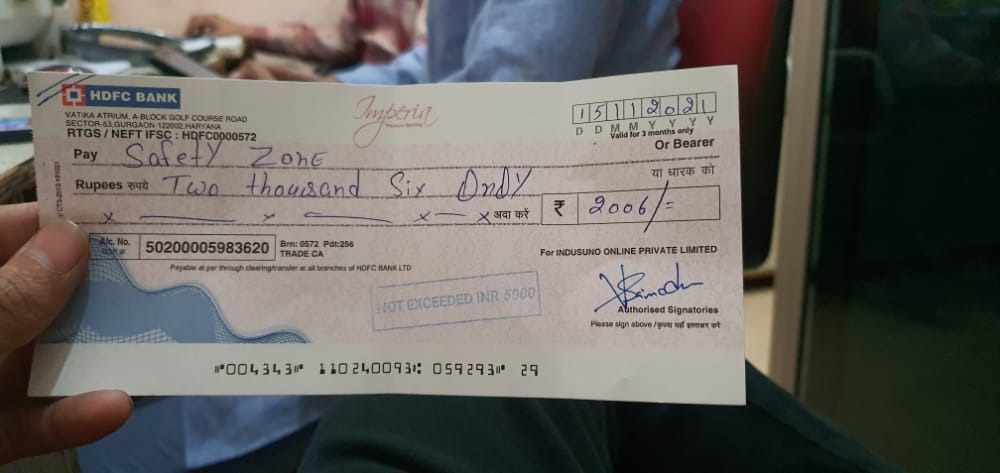 HDFC BANK
VATIKA ATRIUM, A-BLOCK GOLF COURSE ROAD
SECTOR-53, GURGAON-122002, HARYANA
RTGS / NEFT IFSC : HDFC0000572
Imperia
15112021
D D M M Y Y Y Y
Valid for 3 months only
Pay Safety Zone Or Bearer
या धारक को
Rupees रुपये Two thousand Six Only
x x x x अदा करें ₹ 2006/=
A/c. No. 50200005983620 Brn: 0572 Pdt:256
TRADE CA
For INDUSUNO ONLINE PRIVATE LIMITED
Payable at par through clearing/transfer at all branches of HDFC BANK LTD
NOT EXCEEDED INR 5000
Authorised Signatories
Please sign above / कृपया यहाँ हस्ताक्षर करें
⑈004343⑈ 110240093⑆ 059293⑈ 29